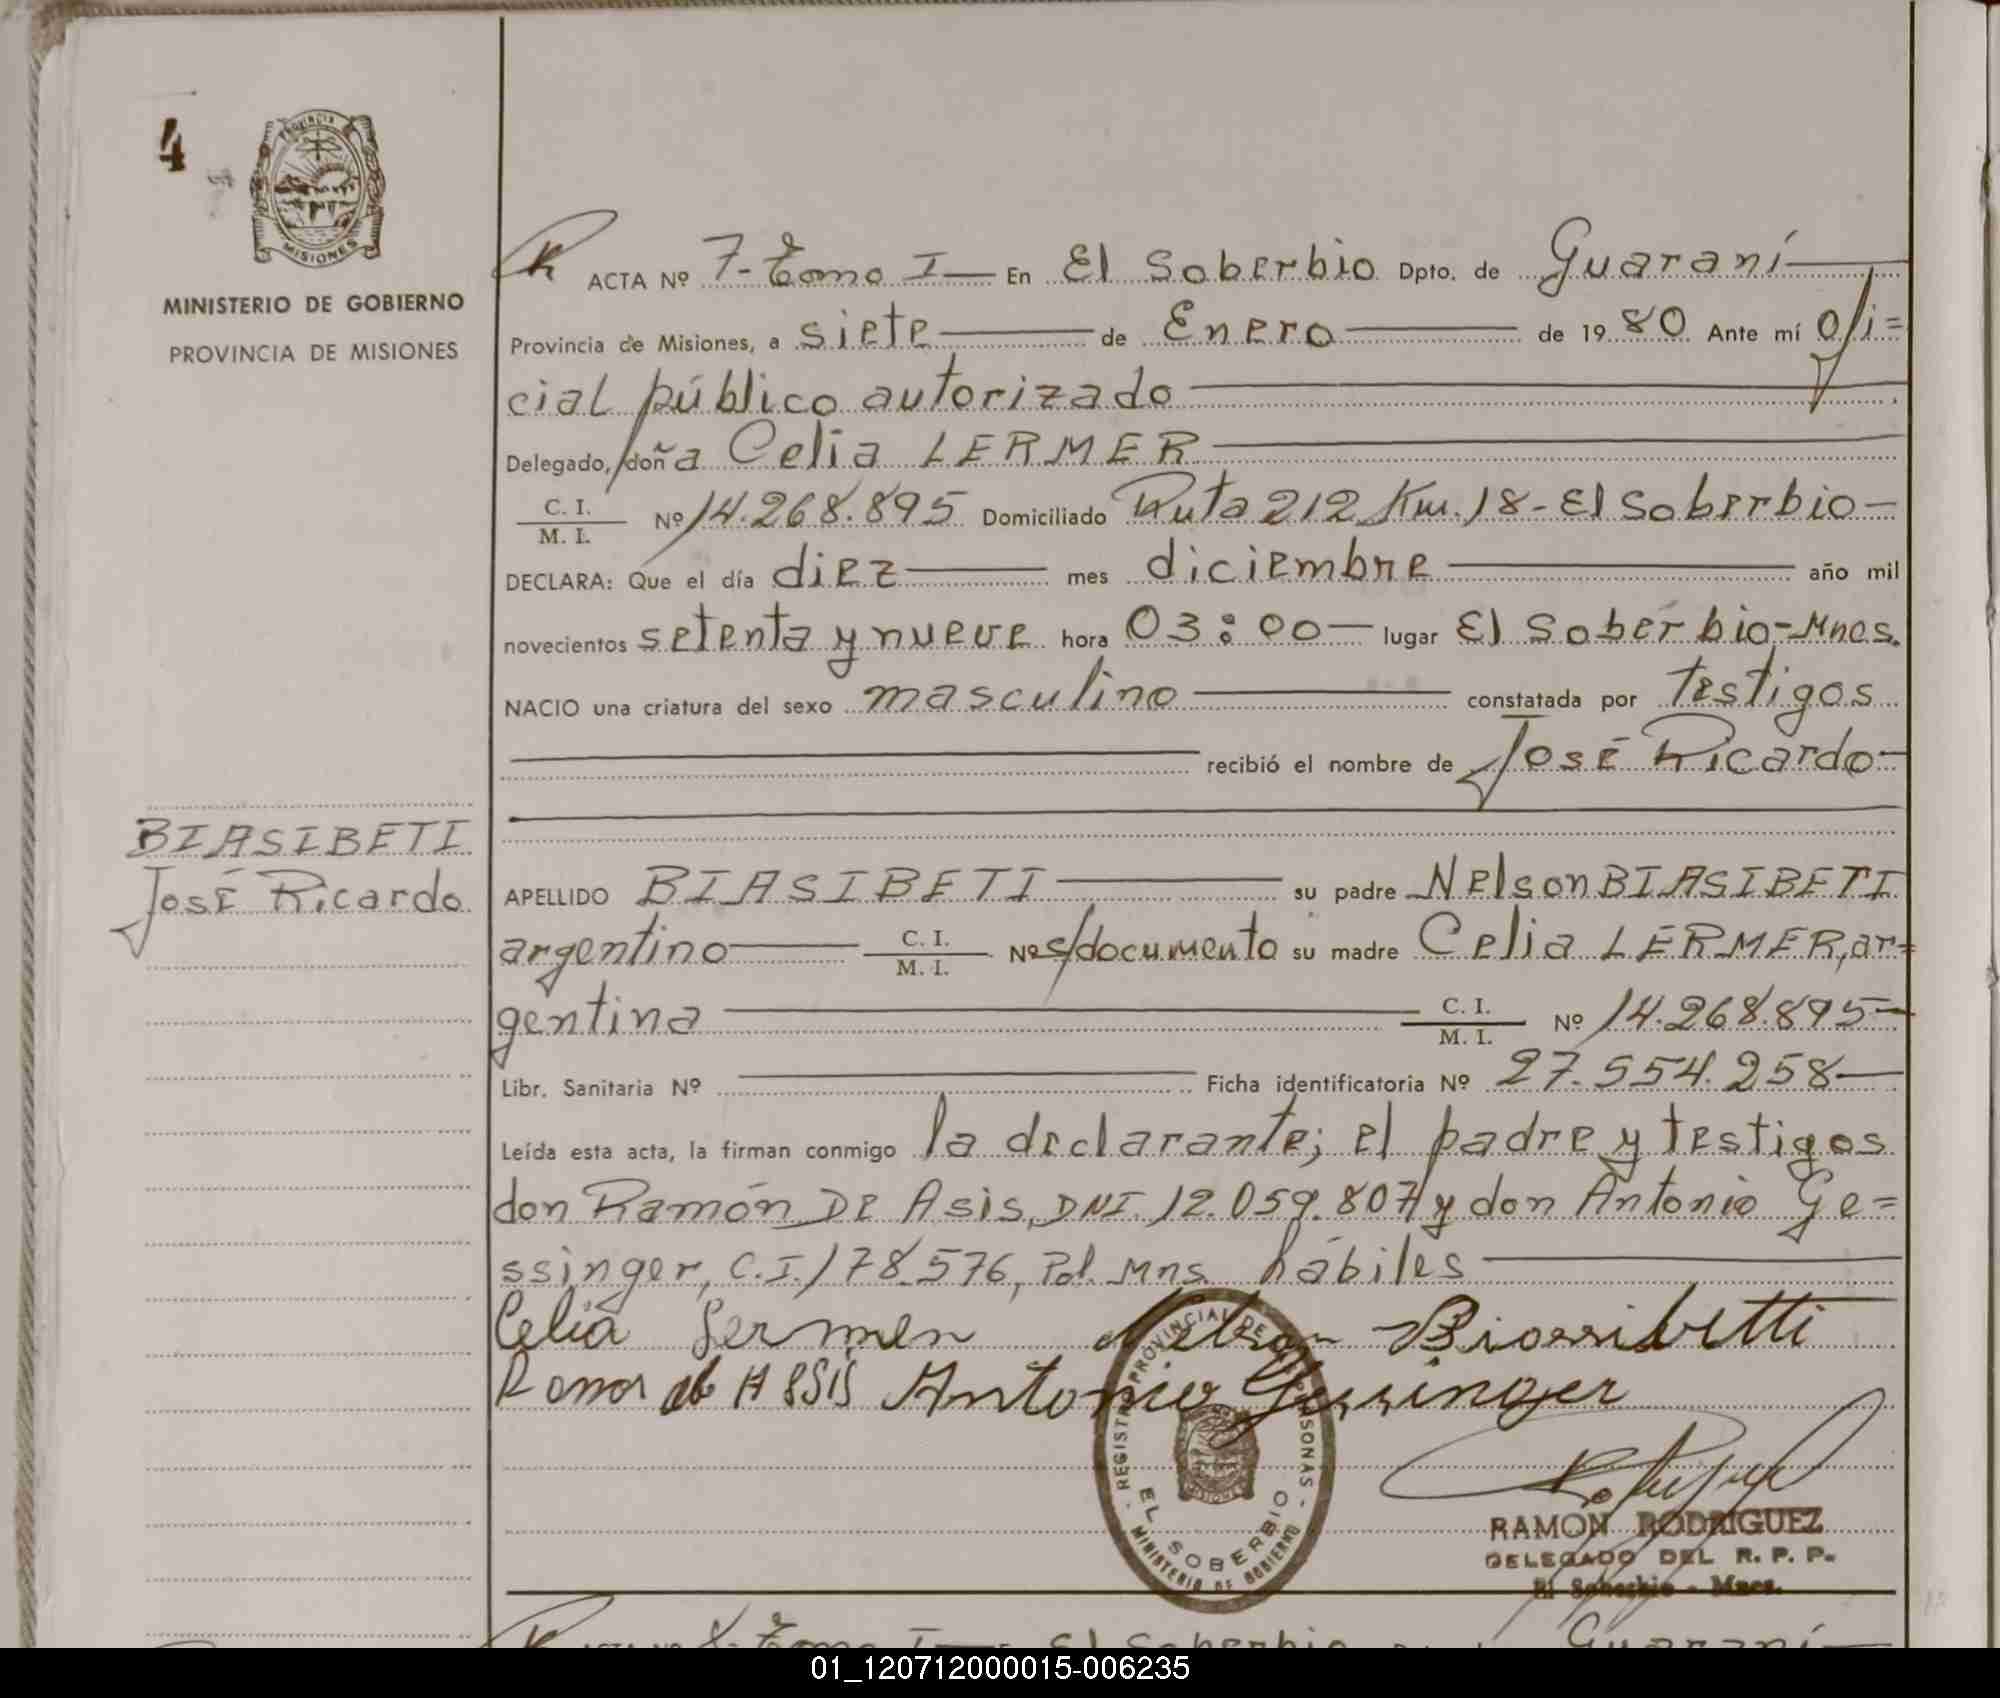 4
PROVINCIA
MISIONES
MINISTERIO DE GOBIERNO
PROVINCIA DE MISIONES
BIASIBETI
José Ricardo
R ACTA Nº 7- Tomo I En El Soberbio Dpto. de Guaraní
Provincia de Misiones, a siete de Enero de 1980 Ante mí ofi=
cial público autorizado
Delegado, doña Celia LERMER
C. I.
M. I. Nº 14.268.895 Domiciliado Ruta 212 Km. 18-El Soberbio-
DECLARA: Que el día diez mes diciembre año mil
novecientos setenta y nueve hora 03:00 lugar El Soberbio-Mnes.
NACIO una criatura del sexo masculino constatada por testigos
recibió el nombre de José Ricardo
APELLIDO BIASIBETI su padre Nelson BIASIBETI
argentino C. I. M. I. Nº s/documento su madre Celia LERMER, ar=
gentina C. I. M. I. Nº 14.268.895
Libr. Sanitaria Nº Ficha identificatoria Nº 27.554.258
Leída esta acta, la firman conmigo la declarante; el padre y testigos
don Ramón DE Asis, DNI. 12.059.807 y don Antonio Ge=
ssinger, C.I. 178.576, Pol. Mns. hábiles
Celia Lermen Nelson Biassibetti
Ramon de ASSIS Antonio Gessinger
REGISTRO PROVINCIAL DE PERSONAS
EL SOBERBIO
MINISTERIO DE GOBIERNO
RAMON RODRIGUEZ
DELEGADO DEL R. P. P.
El Soberbio - Mnes.
R Tomo I El Soberbio Guaraní
01_120712000015-006235